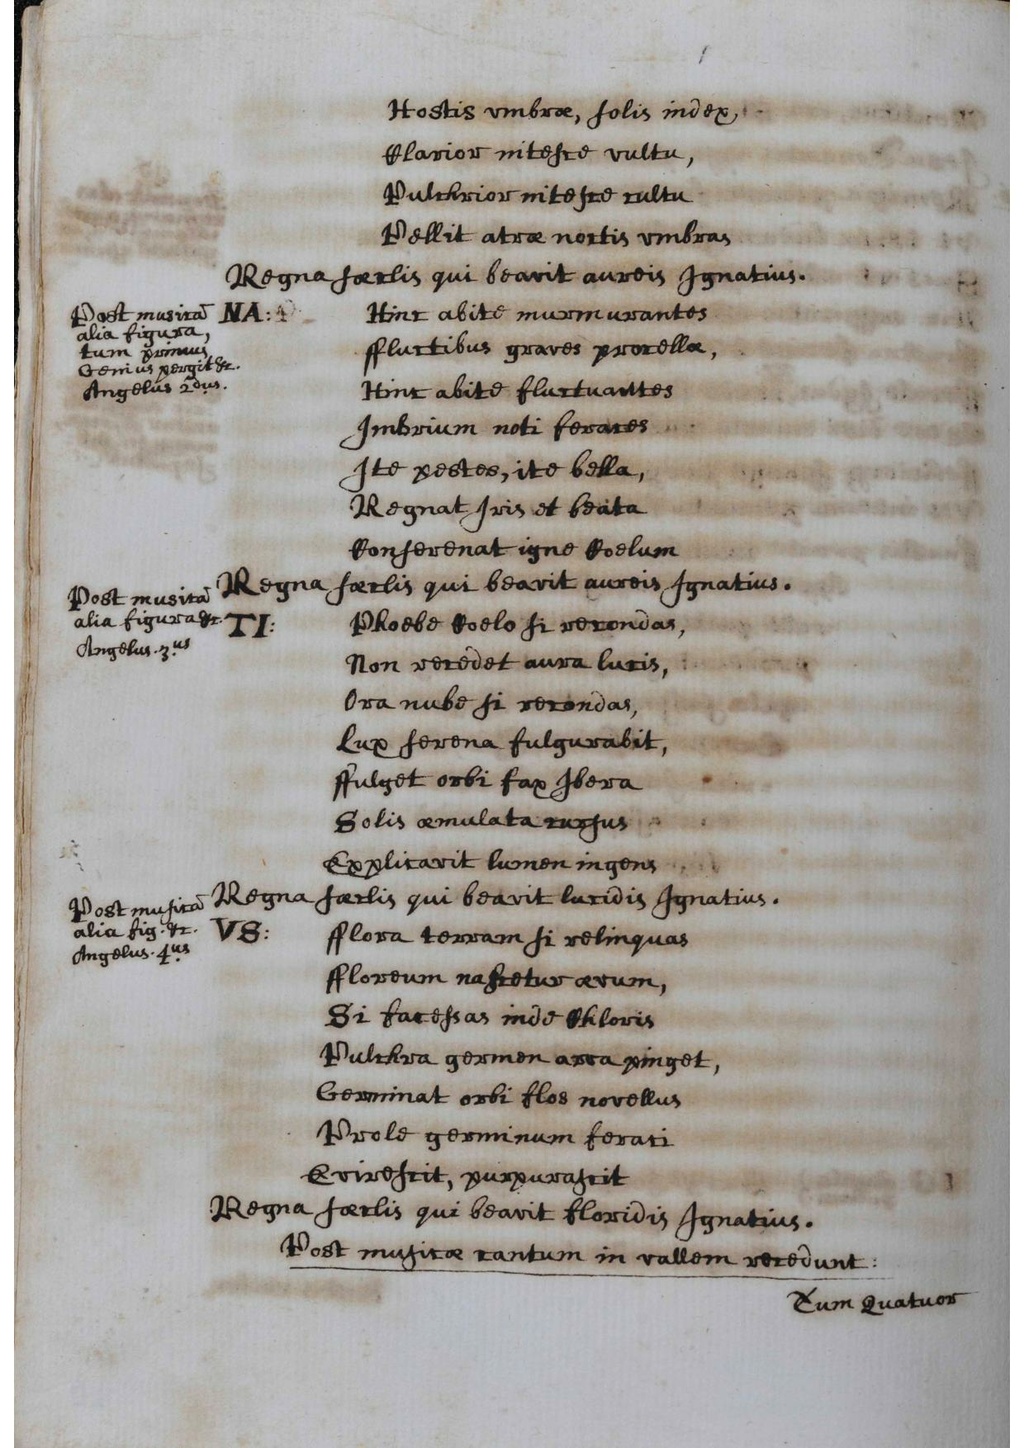 Hostis vmbræ, solis index,
Clarior nitesce vultu,
Pulchrior nitesce cultu
Pellit atræ noctis vmbras
Regna sæclis qui beavit aureis Ignatius.
Post musicã
alia figura,
tum primus
Genius pergit &c.
Angelus 2dus.
NA: Hinc abite murmurantes
ffluctibus graves procellæ,
Hinc abite fluctuantes
Imbrium noti feraces
Ite pestes, ite bella,
Regnat Iris et beata
Conserenat igne Coelum
Regna sæclis qui beavit aureis Ignatius.
Post musicã
alia figura &c.
Angelus. 3.us
TI: Phoebe Coelo si recondas,
Non recedet aura lucis,
Ora nube si recondas,
Lux serena fulgurabit,
ffulget orbi fax Ibera
Solis æmulata cursus
Explicavit lumen ingens
Regna sæclis qui beavit lucidis Ignatius.
Post musicã
alia fig. &c.
Angelus. 4.us
VS: fflora terram si relinquas
ffloreum nascetur ævum,
Si facessas inde Chloris
Pulchra germen arva pinget,
Germinat orbi flos novellus
Prole germinum feraci
Evirescit, purpurascit
Regna sæclis qui beavit floridis Ignatius.
Post musicæ cantum in vallem recedunt:
Tum Quatuor